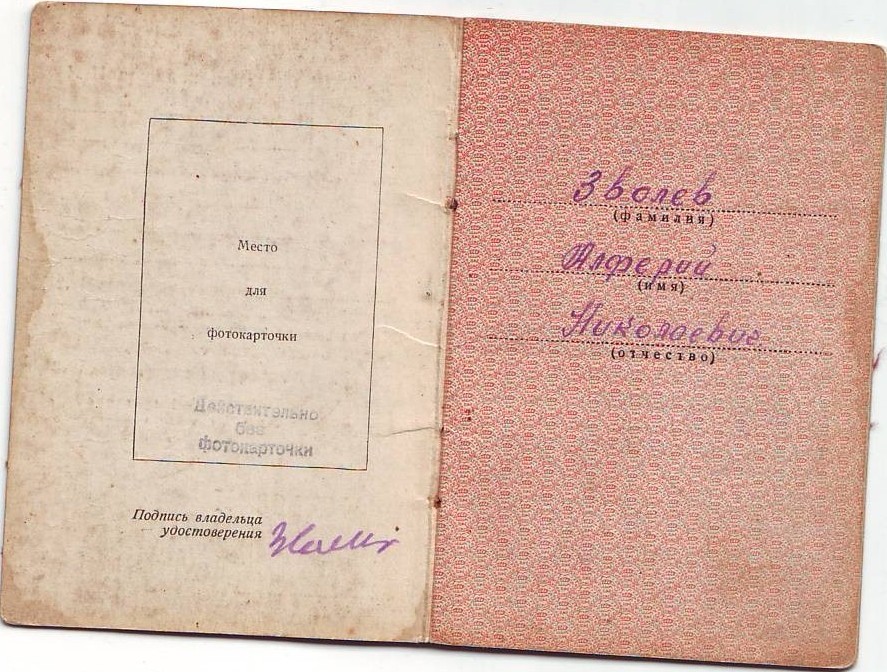 Место
для
фотокарточки
Действительно
без
фотокарточки
Подпись владельца
удостоверения
Зволев
(фамилия)
Алферий
(имя)
Николаевич
(отчество)